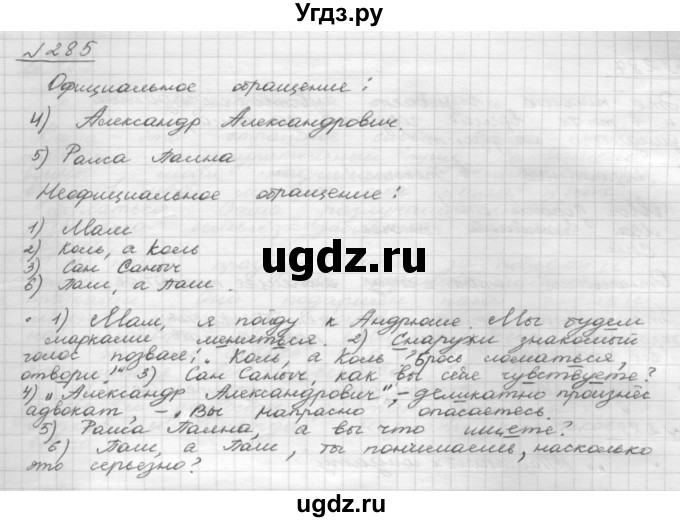 Угдз.ру
№285
Официальное обращение:
4) Александр Александрович.
5) Раиса Пална
Неофициальное обращение:
1) Мам
2) Коль, а Коль
3) Сан Саныч
6) Паш, а Паш.
ugdz.ru
• 1) Мам, я пойду к Андрюше. Мы будем
марками меняться. 2) Снаружи знакомый
голос позвал: „Коль, а Коль? Брось ломаться,
отвори!" 3) Сан Саныч, как вы себе чувствуете?
4) „Александр Александрович", - деликатно произнёс
адвокат, - „Вы напрасно опасаетесь.
5) Раиса Пална, а вы что ищете?
6) Паш, а Паш, ты понимаешь, насколько
это серьезно?
ugdz.ru